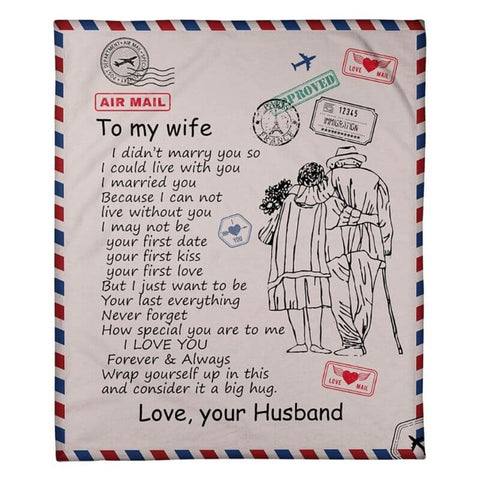 POST DEPARTMENT • AIR MAIL •
LOVE MAIL
APPROVED
12345
IMMIGRATION
AIR MAIL
To my wife
I didn't marry you so
I could live with you
I married you
Because I can not
live without you
I may not be
your first date
your first kiss
your first love
But I just want to be
Your last everything
Never forget
How special you are to me
I LOVE YOU
Forever & Always
Wrap yourself up in this
and consider it a big hug.
I
YOU
LOVE MAIL
Love, your Husband